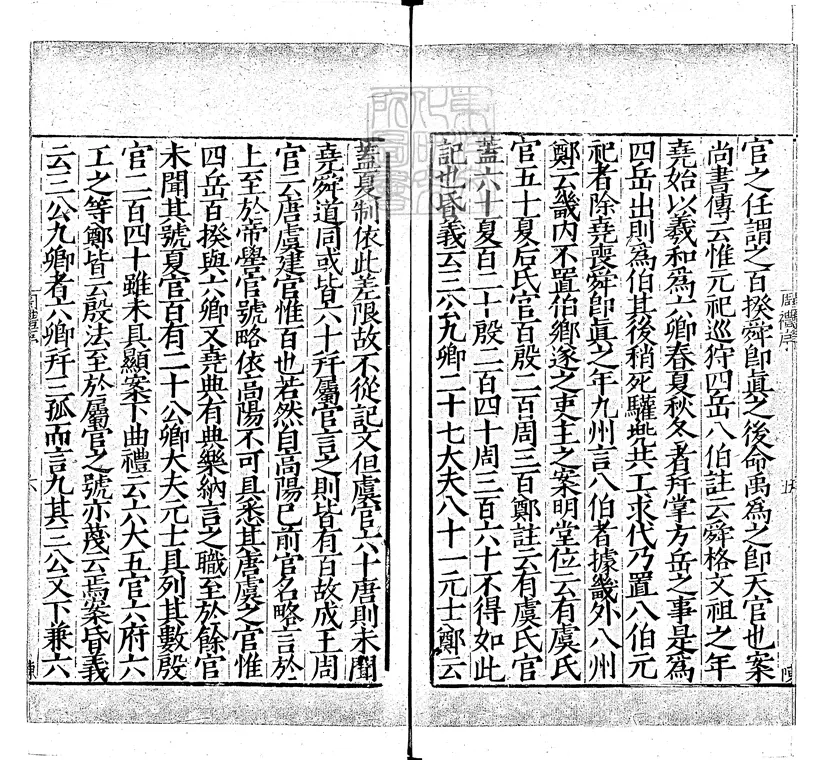 官之任謂之百揆舜即眞之後命禹為之即天官也案
尚書傳云惟元祀巡狩四岳八伯註云舜格文祖之年
堯始以羲和為六卿春夏秋冬者并掌方岳之事是為
四岳出則為伯其後稍死驩兠共工求代乃置八伯元
祀者除堯喪舜即眞之年九州言八伯者據畿外八州
鄭云畿内不置伯鄉遂之吏主之案明堂位云有虞氏
官五十夏后氏官百殷二百周三百鄭註云有虞氏官
蓋六十夏百二十殷二百四十周三百六十不得如此
記也昏義云三公九卿二十七大夫八十一元士鄭云
蓋夏制依此差限故不從記文但虞官六十唐則未聞
堯舜道同或皆六十并屬官言之則皆有百故成王周
官云唐虞建官惟百也若然自高陽已前官名略言於
上至於帝嚳官號略依高陽不可具悉其唐虞之官惟
四岳百揆與六卿又堯典有典樂納言之職至於餘官
未聞其號夏官百有二十公卿大夫元士具列其數殷
官二百四十雖未具顯案下曲禮云六大五官六府六
工之等鄭皆云殷法至於屬官之號亦蔑云焉案昏義
云三公九卿者六卿并三孤而言九其三公又下兼六
周禮序
六